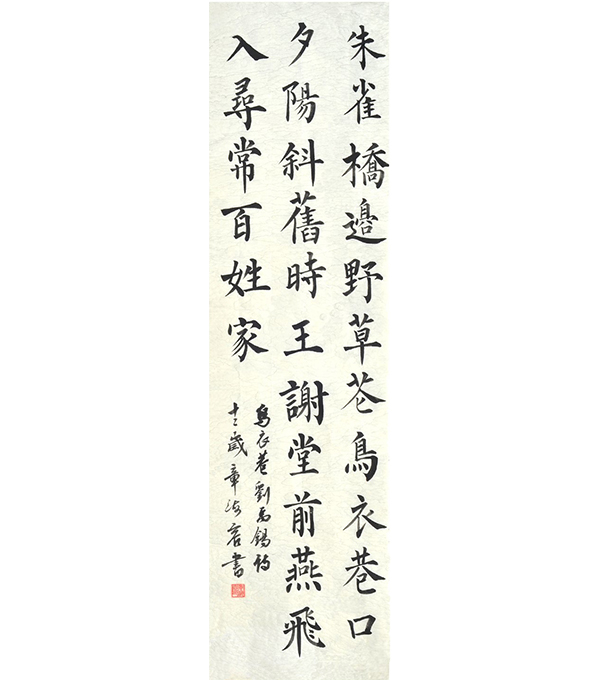 朱雀橋邊野草花鳥衣巷口
夕陽斜舊時王謝堂前燕飛
入尋常百姓家
烏衣巷劉禹錫詩
十二歲章海容書